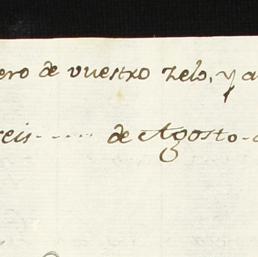 ero de vuestro zelo, y a
eis - - - - - de Agosto